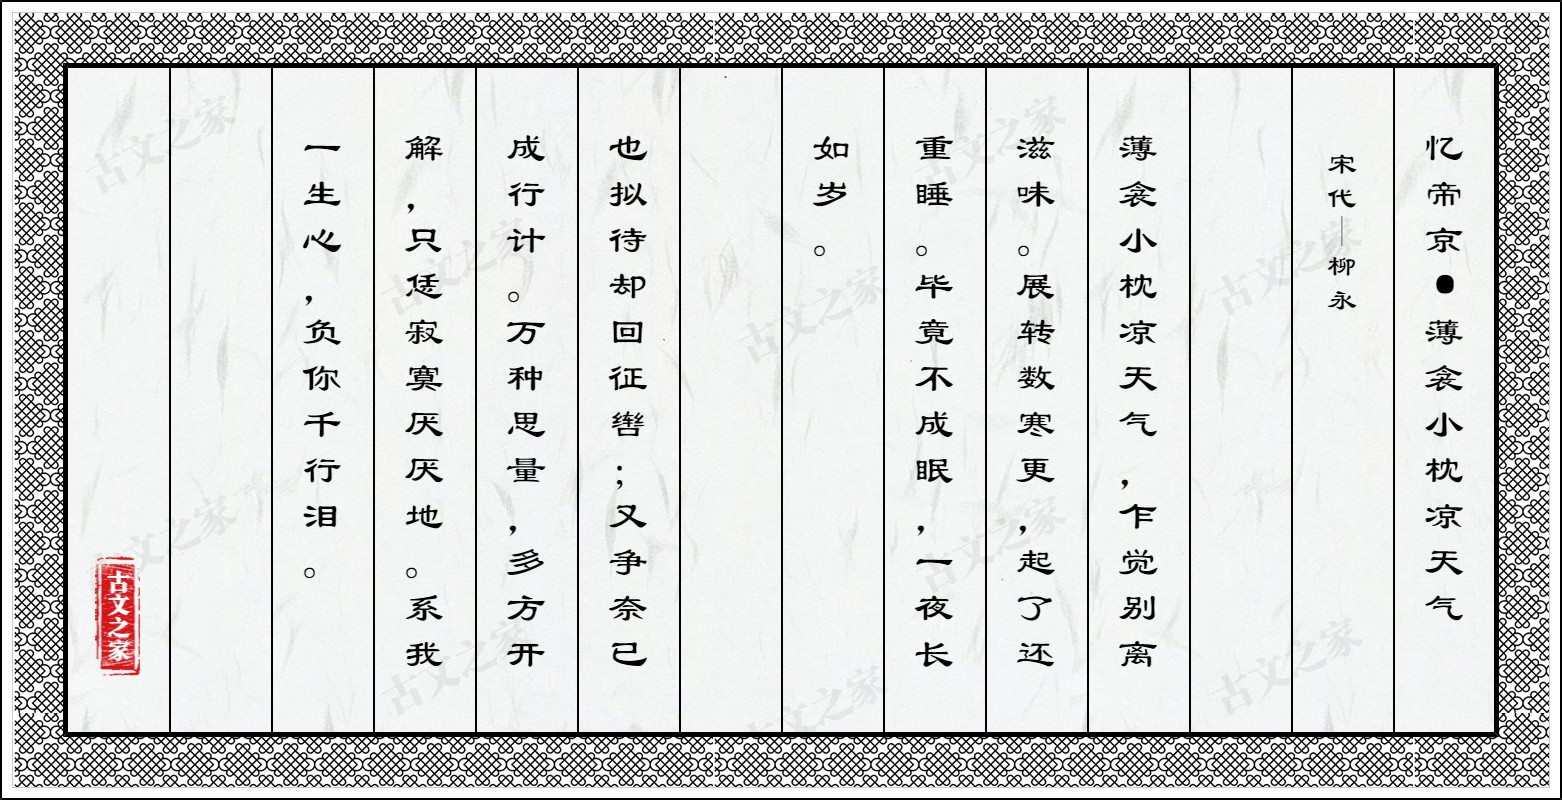 忆帝京·薄衾小枕凉天气
宋代｜柳永
薄衾小枕凉天气，乍觉别离
滋味。展转数寒更，起了还
重睡。毕竟不成眠，一夜长
如岁。
也拟待却回征辔；又争奈已
成行计。万种思量，多方开
解，只恁寂寞厌厌地。系我
一生心，负你千行泪。
古文之家